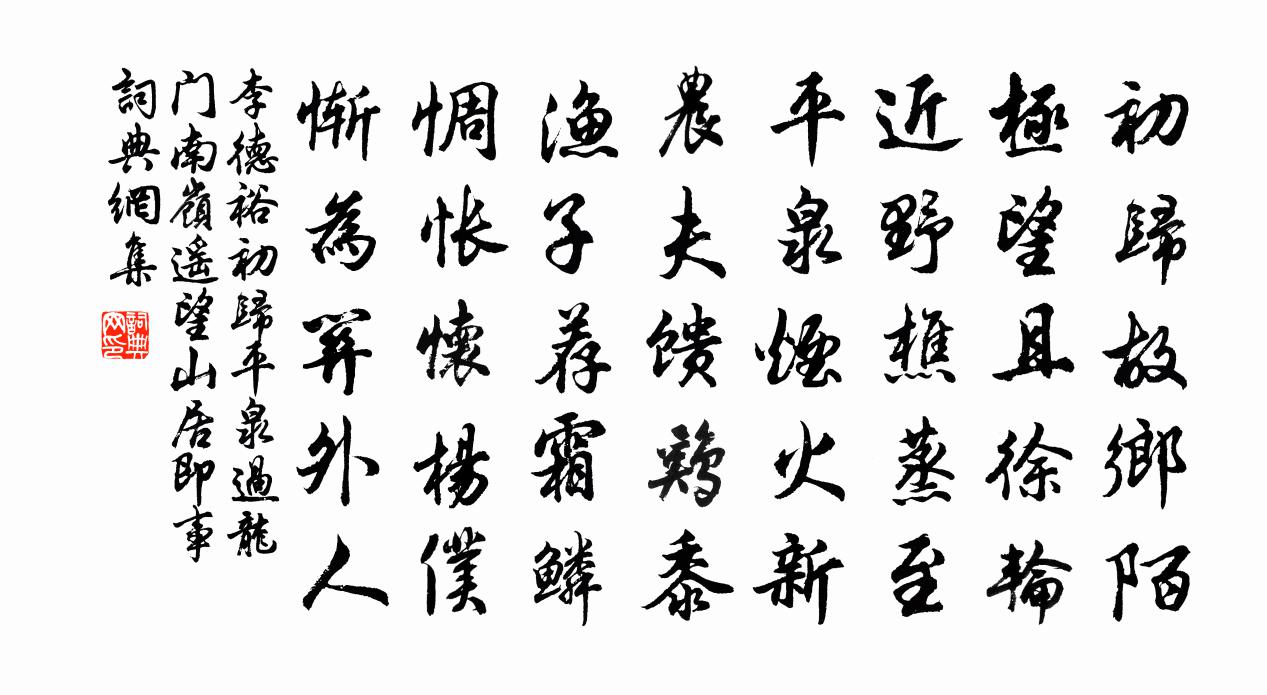 初歸故鄉陌
極望且徐輪
近野樵蒸至
平泉煙火新
農夫馈鷄黍
漁子荐霜鱗
惆怅懷楊僕
慚為関外人
李德裕初歸平泉過龍
门南嶺遥望山居即事
詞典網集
詞典網印